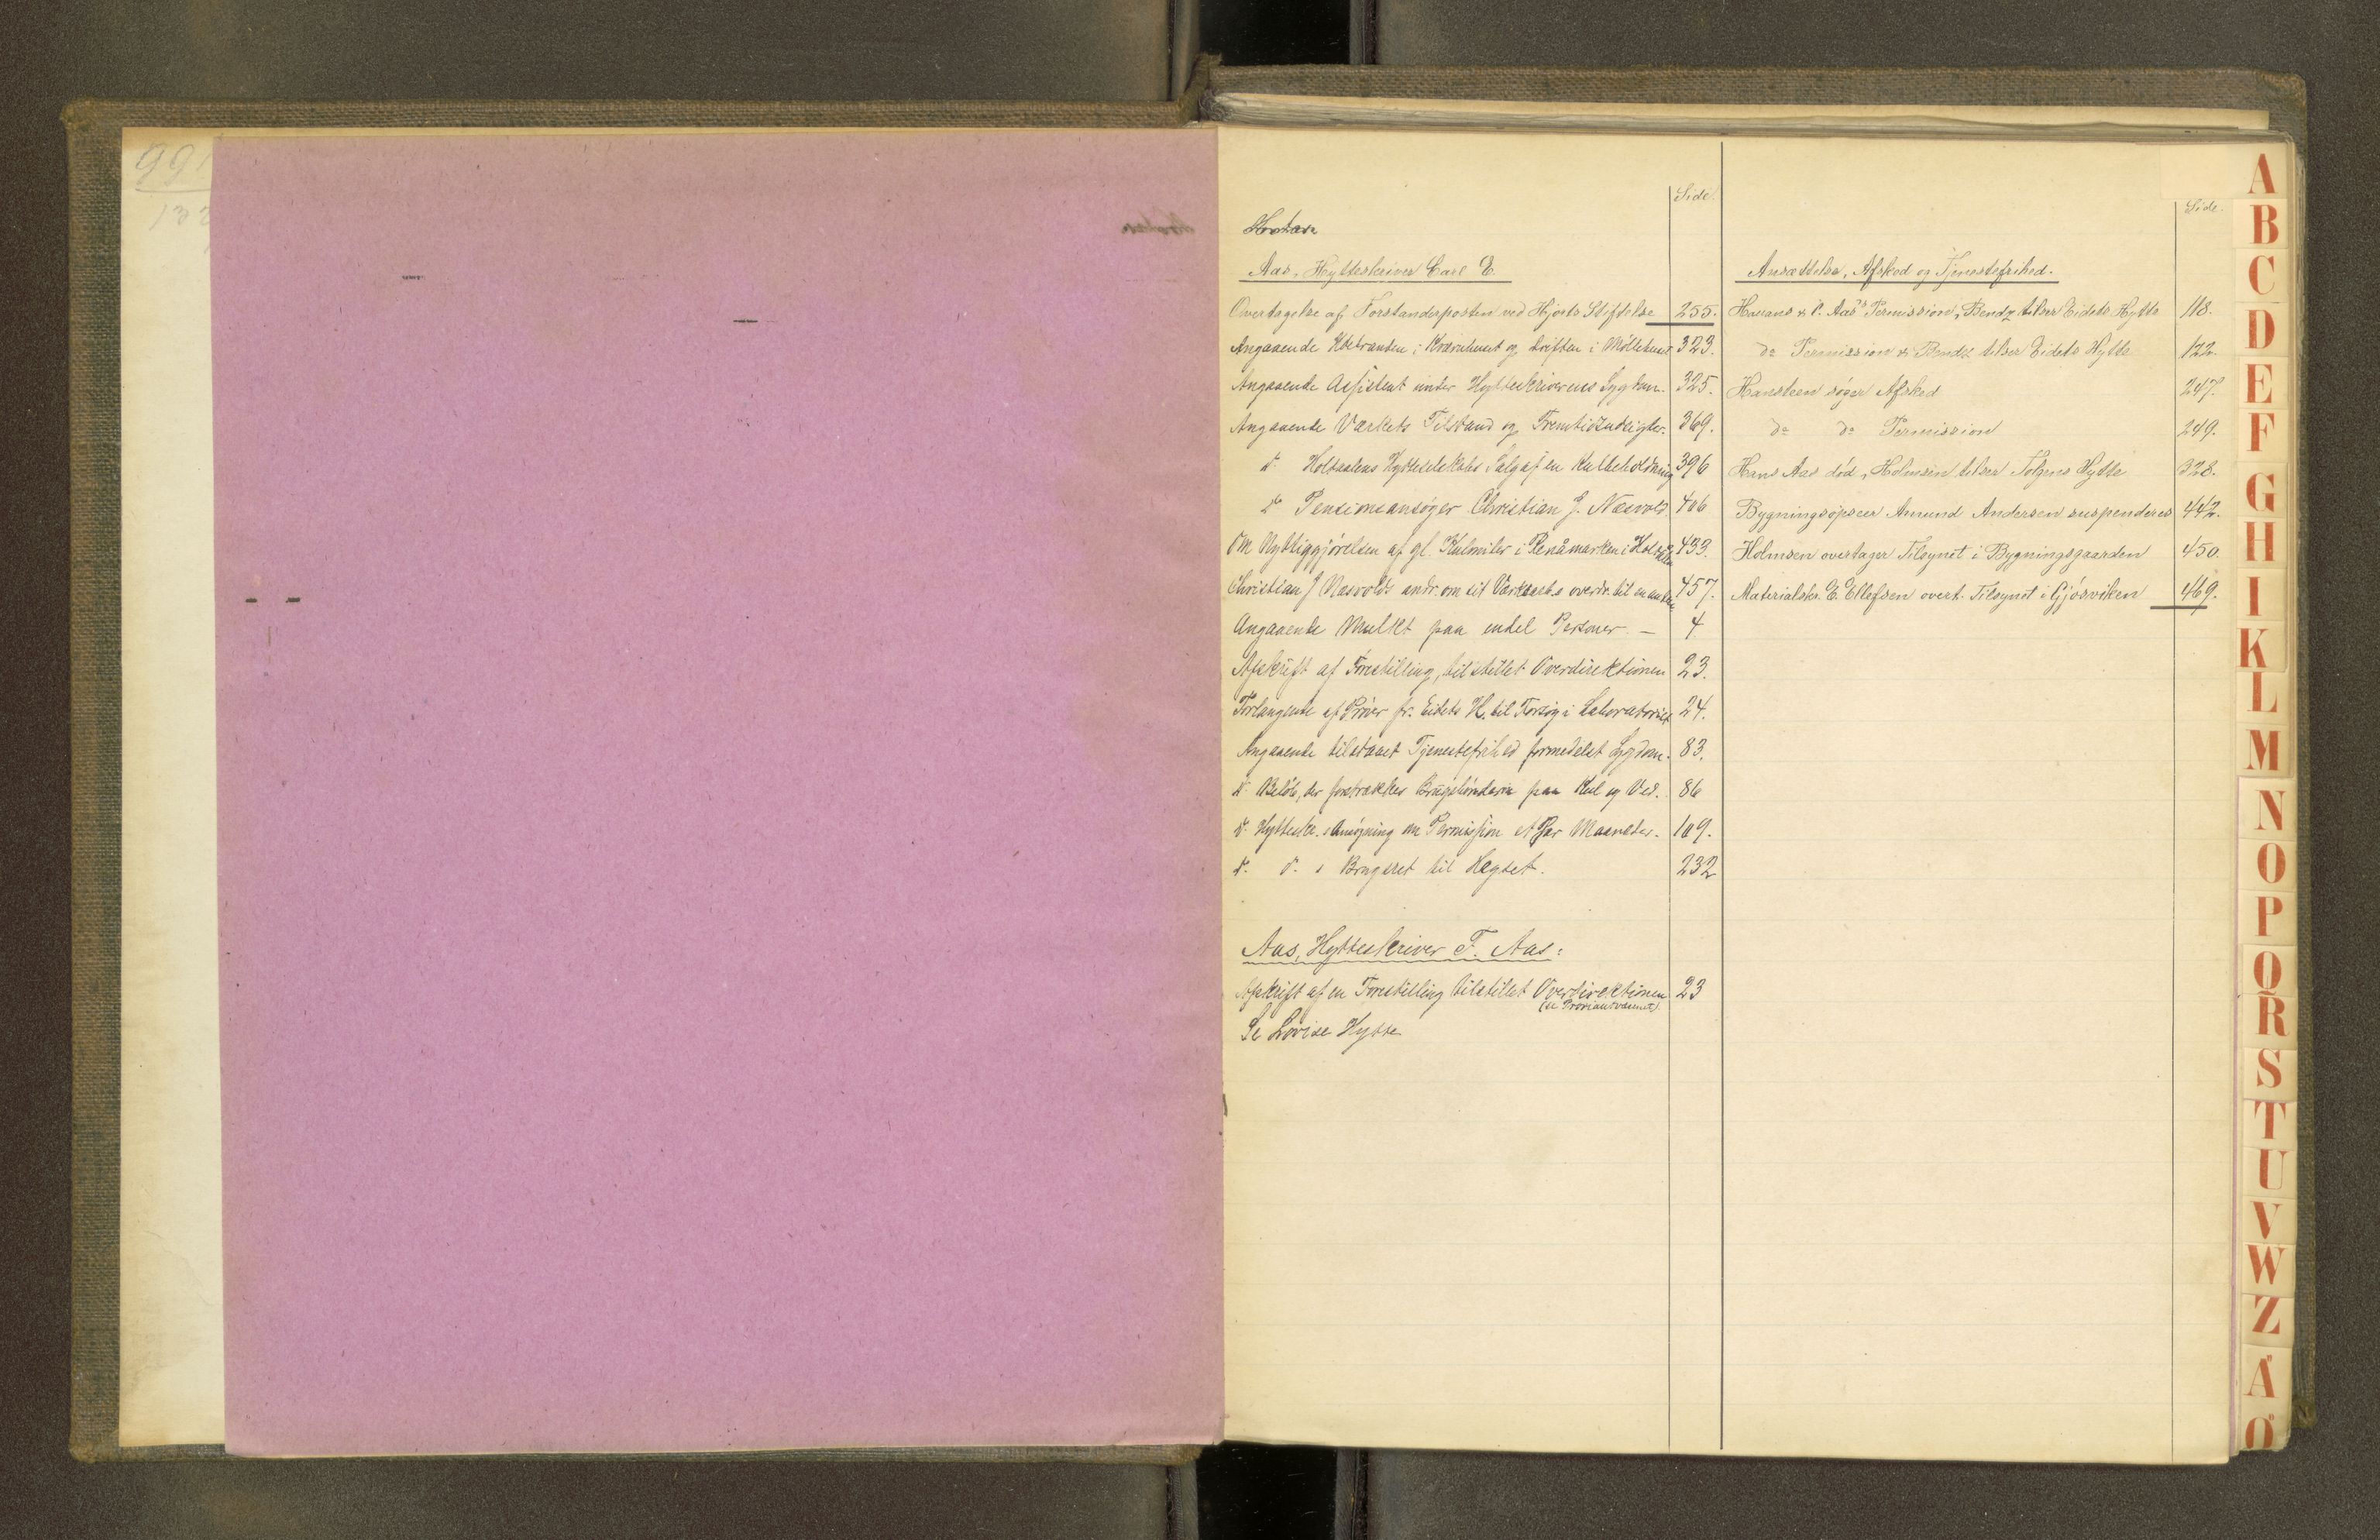 991
132
Side.
Aas, Hytteskriver Carl E.
Overtagelse af Forstanderposten ved Hjorts Stiftelse 255.
Angaaende Ildebranden i Kværnhuset og driften i Möllehuset 323.
Angaaende Assistent under Hytteskriverens Sygdom. 325.
Angaaende Værkets Tilstand og Fremtidsudsigter. 369.
do Holtaalens Hytteselskabs Salg af en Kulbeholdning 396
do Pensionsansøger Christian J. Næsvold 406
Om Nyttiggjörelsen af gl. Kulmiler i Renåmarken i Holtaalen 433.
Christian J Næsvolds andr. om sit overdr. til en anden 457.
Angaaende Mulkt paa endel Personer. — 4
Afskrift af Forestilling, tilstillet Overdirektionen 23.
Forlangende af Pröver fr. Eidets H. til Forsög i Laboratoriet 24.
Angaaende tilstaaet Tjenestefrihed formedelst Sygdom. 83.
do Belöb, der forstrækkes Brugsbönderne paa Kul og Ved. 86
do Hytteskr. s Ansögning om Permission et Par Maaneder. 109.
do do s Brugsret til Hegset. 232
Aas, Hytteskriver F. Aas:
Afskrift af en Forestilling tilstillet Overdirektionen 23
(se Proviantvæsenet)
Se Lovise Hytte
Side.
Ansættelse, Afsked og Tjenestefrihed.
Havans & C. Aas's Permission, Bendz tilser Eidets Hytte 118.
do Permission & Bendz tilser Eidets Hytte 122.
Hansteen søger Afsked 247.
do do Permission 249.
Hans Aas död, Holmsen tilser Tolgens Hytte 328.
Bygningsopseer Amund Andersen suspenderes 442.
Holmsen overtager Tilsynet i Bygningsgaarden 450.
Materialskr. E. Ellefsen overt. Tilsynet i Gjösviken 469.
A
B
C
D
E
F
G
H
I
K
L
M
N
O
P
Q
R
S
T
U
V
W
Z
Å
Ö